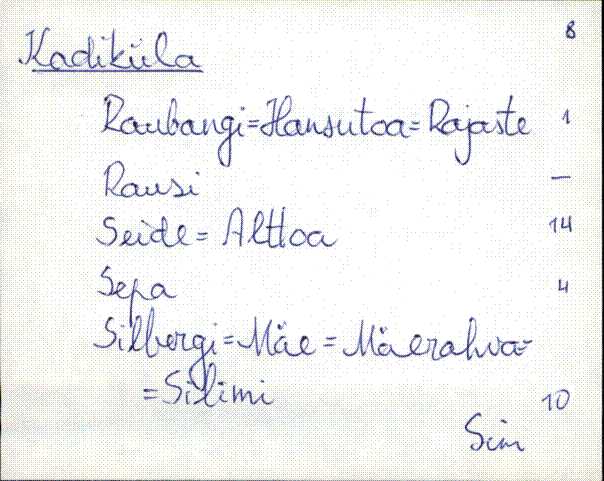 8
Kadiküla
Raubangi=Hansutoa=Rajaste 1
Rausi —
Seide= Alttoa 14
Sepa 4
Silbergi=Mäe=Mäerahva=
=Silimi 10
Sim